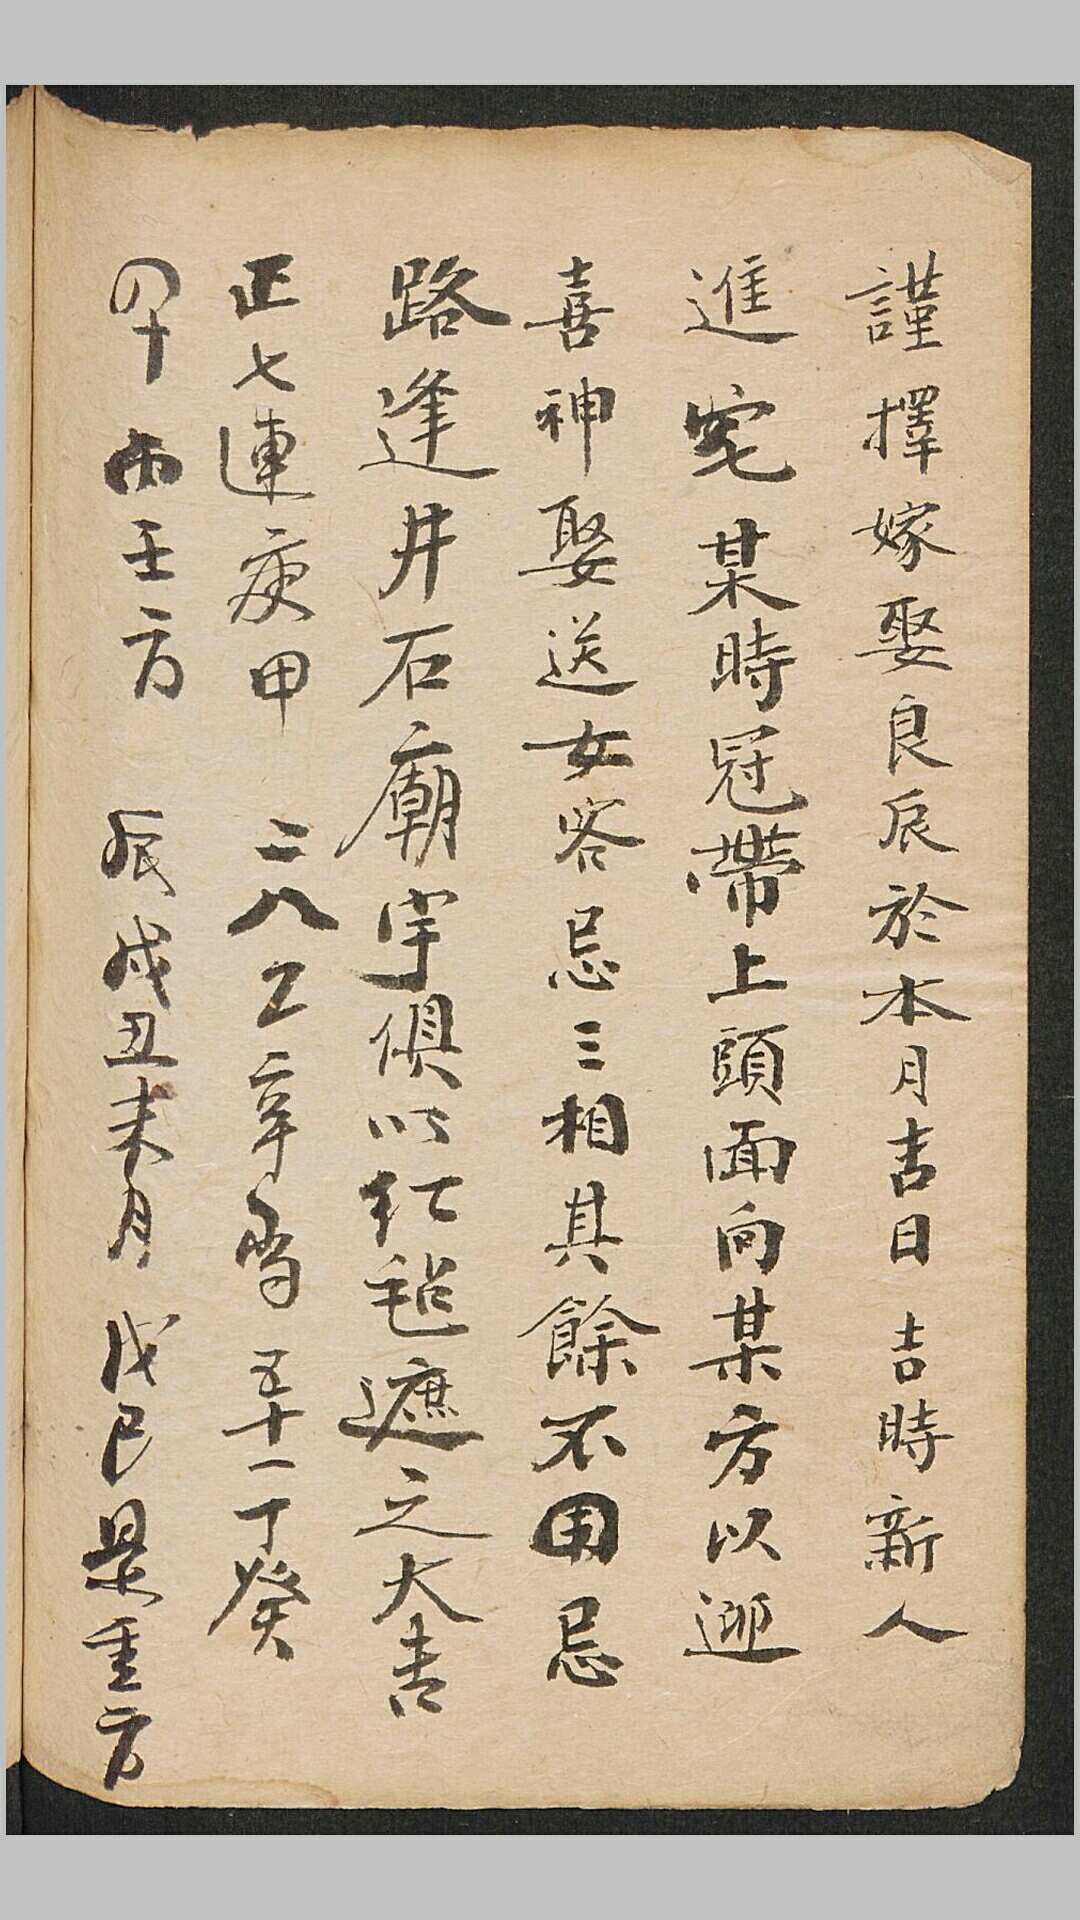 謹擇嫁娶良辰於本月吉日吉時新人
進宅某時冠帶上頭面向某方以迎
喜神娶送女客忌三相其餘不用忌
路逢井石廟宇俱以紅毡遮之大吉
正七連庚甲 二八乙辛當 五十一丁癸
四十丙壬方 辰戌丑未月 戊己是重方